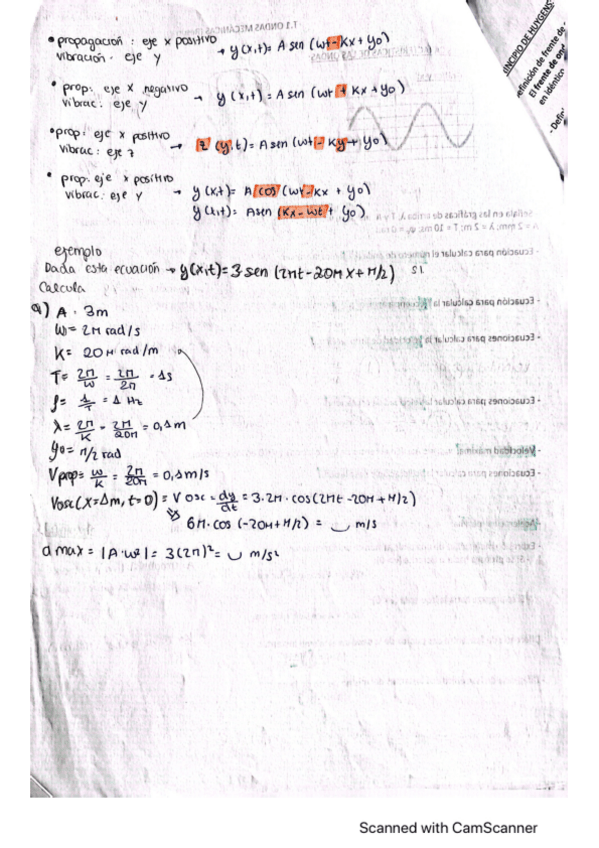 • propagación : eje x positivo
vibración · eje y → y(x,t)= A sen (wt-Kx+yo)
• prop: eje x negativo
vibrac: eje y → y(x,t)= A sen (wt + Kx+yo)
• prop: eje x positivo
vibrac: eje z → z (y,t)= A sen (wt - Ky + yo)
• prop. eje x positivo
vibrac: eje y → y(x,t)= A cos (wt-kx + yo)
y(x,t)= A sen (Kx-wt + yo)
ejemplo
Dada esta ecuación → y(x,t)=3 sen (2πt-20πx+π/2) SI
Calcula
a) A · 3m
W= 2π rad/s
K= 20π rad/m
T= 2π/W = 2π/2π = 1s
f= 1/T = 1 Hz
λ= 2π/K = 2π/20π = 0,1m
yo= π/2 rad
Vprop= w/k = 2π/20π = 0,1m/s
Vosc(x=1m, t=0) = Vosc = dy/dt = 3·2π·cos(2πt-20π+π/2)
6π·cos (-20π+π/2) = m/s
a max = |A·w²| = 3(2π)² = m/s²
PRINCIPIO DE HUYGENS
El frente de
Scanned with CamScanner